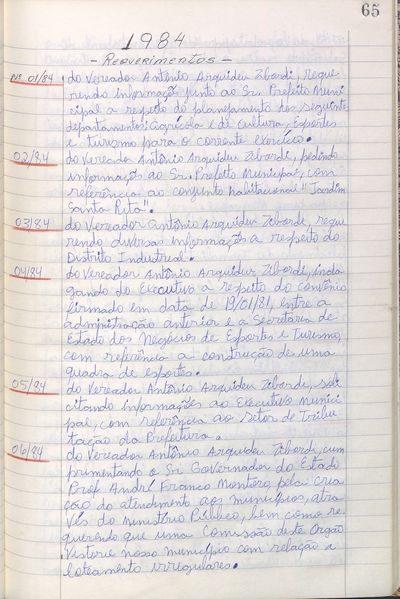 65
1984
- Requerimentos -
Nº 01/84 do Vereador Antônio Arquideu Zibordi, reque
rendo informação junto ao Sr. Prefeito Muni
cipal a respeito do planejamento dos seguinte
departamentos: agrícola e de cultura, Esportes
e turismo para o corrente exercício.
02/84 do Vereador Antônio Arquideu Zibordi, pedindo
informação ao Sr. Prefeito Municipal, com
referência ao conjunto habitacional "Jardim
Santa Rita".
03/84 do Vereador Antônio Arquideu Zibordi, reque
rendo diversas informações a respeito do
Distrito Industrial.
04/84 do Vereador Antônio Arquideu Zibordi, inda
gando do Executivo a respeito do convênio
firmado em data de 19/01/81, entre a
administração anterior e a Secretaria de
Estado dos Negócios de Esportes e Turismo,
com referência a construção de uma
quadra de esportes.
05/84 do Vereador Antônio Arquideu Zibordi, soli
citando informações ao Executivo Munici
pal, com referência ao setor de Tribu
tação da Prefeitura.
06/84 do Vereador Antônio Arquideu Zibordi, cum
primentando o Sr. Governador do Estado
Prof. André Franco Montoro, pela cria
ção do atendimento aos municípios, atra
vés do Ministério Público, bem como re
querendo que uma Comissão deste Orgão
Vistorie nosso município com relação a
loteamento irregulares.